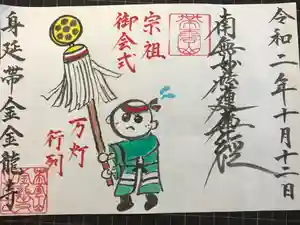 令和二年十月十二日
南無妙法蓮華経
宗祖
御会式
万灯
行列
身延帯金金龍寺